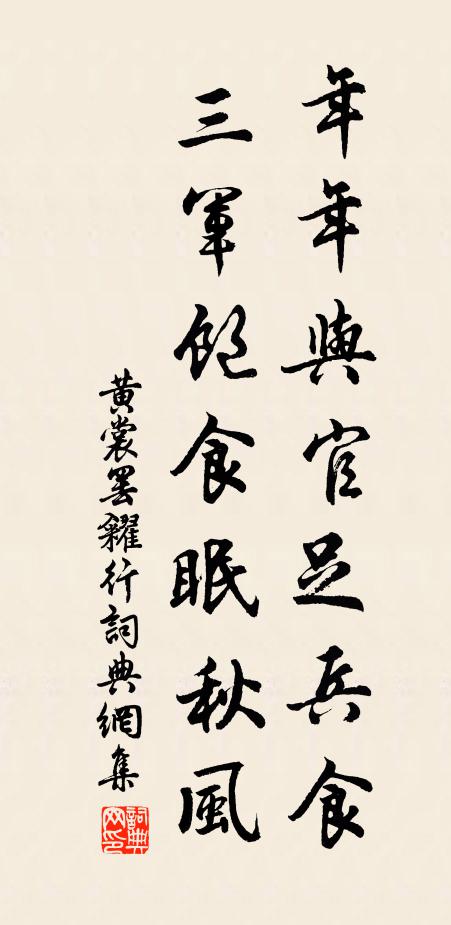 年年與官足兵食
三軍飽食眠秋風
黃裳罷糴行詞典網集
詞典網印